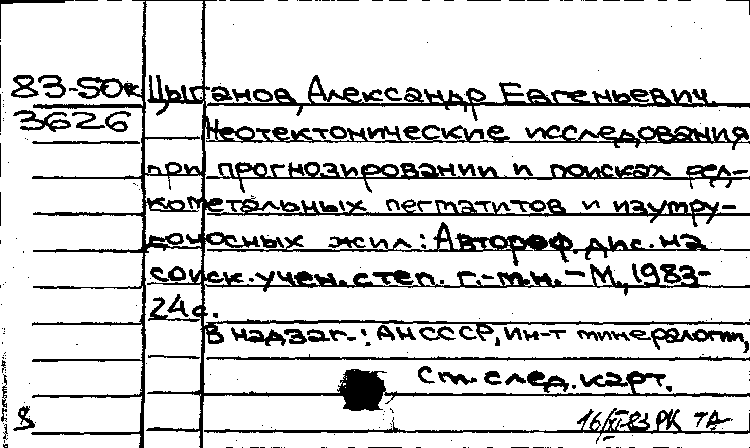 83-50к Цыганов, Александр Евгеньевич.
3626 Неотектонические исследования
при прогнозировании и поисках ред-
кометальных пегматитов и изумру-
доносных жил: Автореф. дис. на
соиск. учен. степ. г.-м.н. - М., 1983-
24с.
В надзаг.: АН СССР, Ин-т минералогии,
См. след. карт.
8 16/XI-83 РК ТА